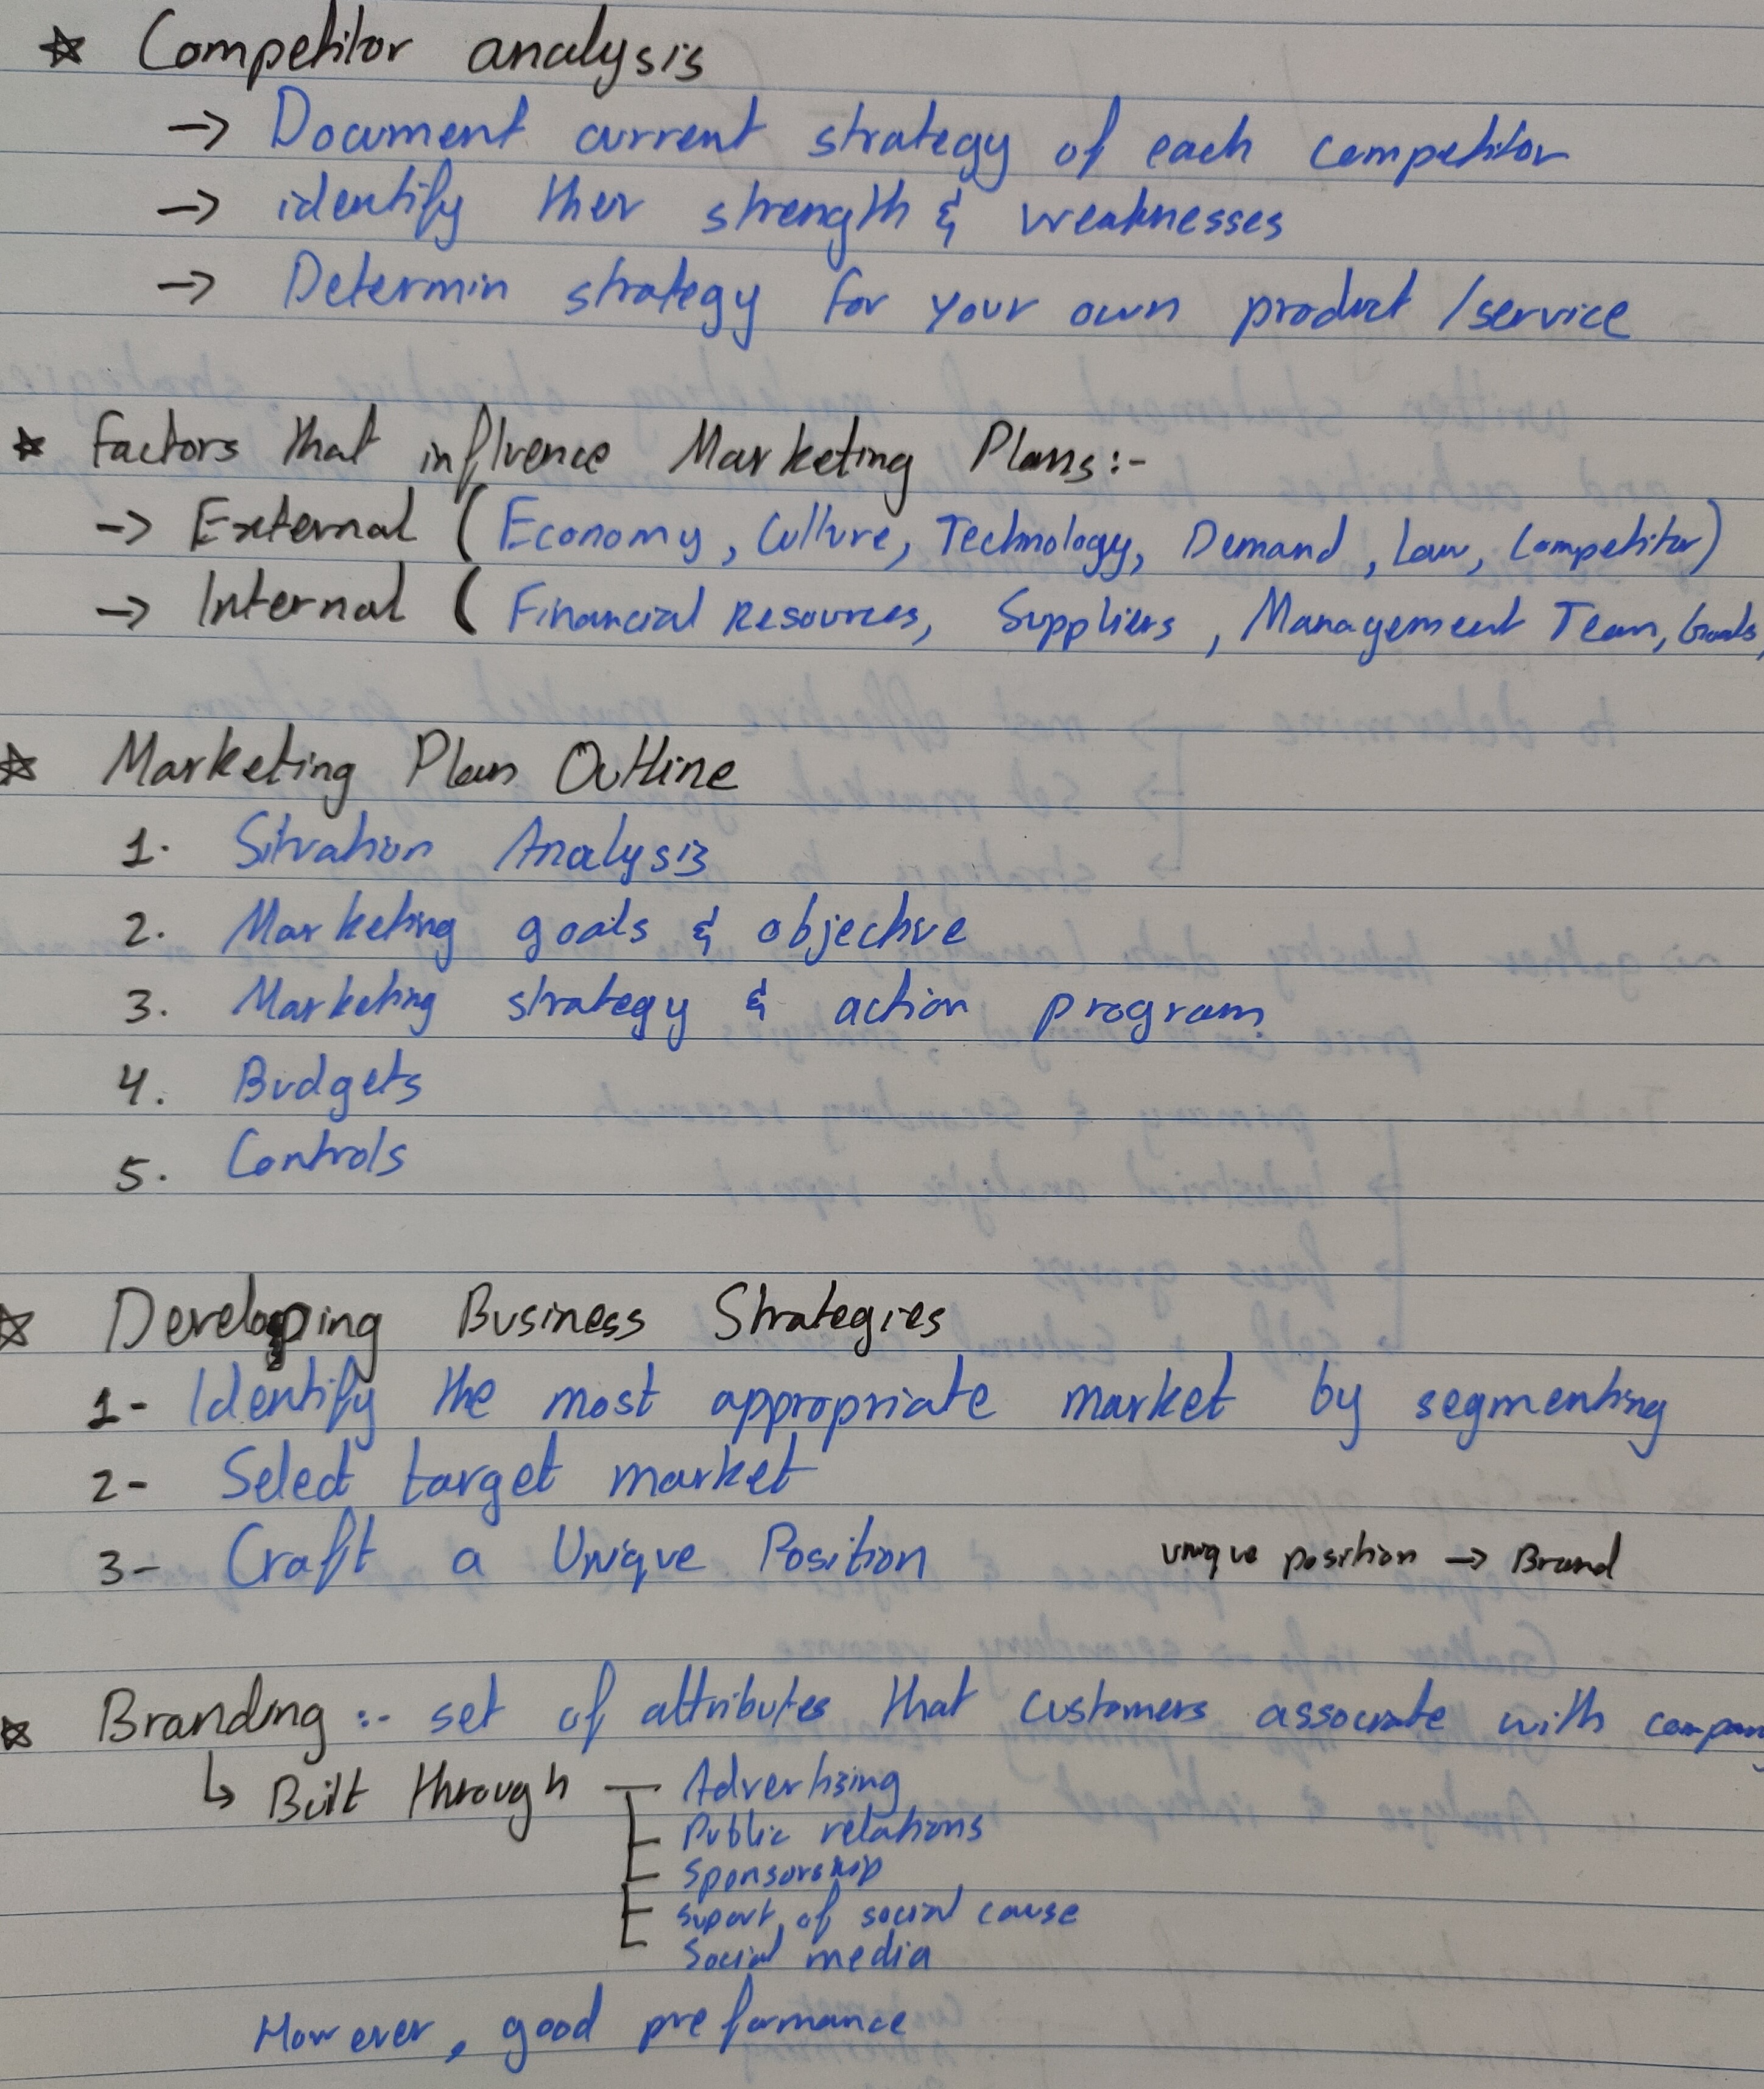 ☆ Competitor analysis
→ Document current strategy of each competitor
→ identify ther strength & weaknesses
→ Determin strategy for your own product /service
☆ Factors that influence Marketing Plans:-
→ External (Economy, Culture, Technology, Demand, Law, Competitor)
→ Internal (Financial Resources, Suppliers, Management Team, Goals,
☆ Marketing Plan Outline
1. Situation Analysis
2. Marketing goals & objective
3. Marketing strategy & action program
4. Budgets
5. Controls
☆ Developing Business Strategies
1- Identify the most appropriate market by segmenting
2- Select target market
3- Craft a Unique Position unique position → Brand
☆ Branding :- set of attributes that customers associate with company
↳ Built through — Advertising
Public relations
Sponsorship
Suport of social cause
Social media
However, good preformance